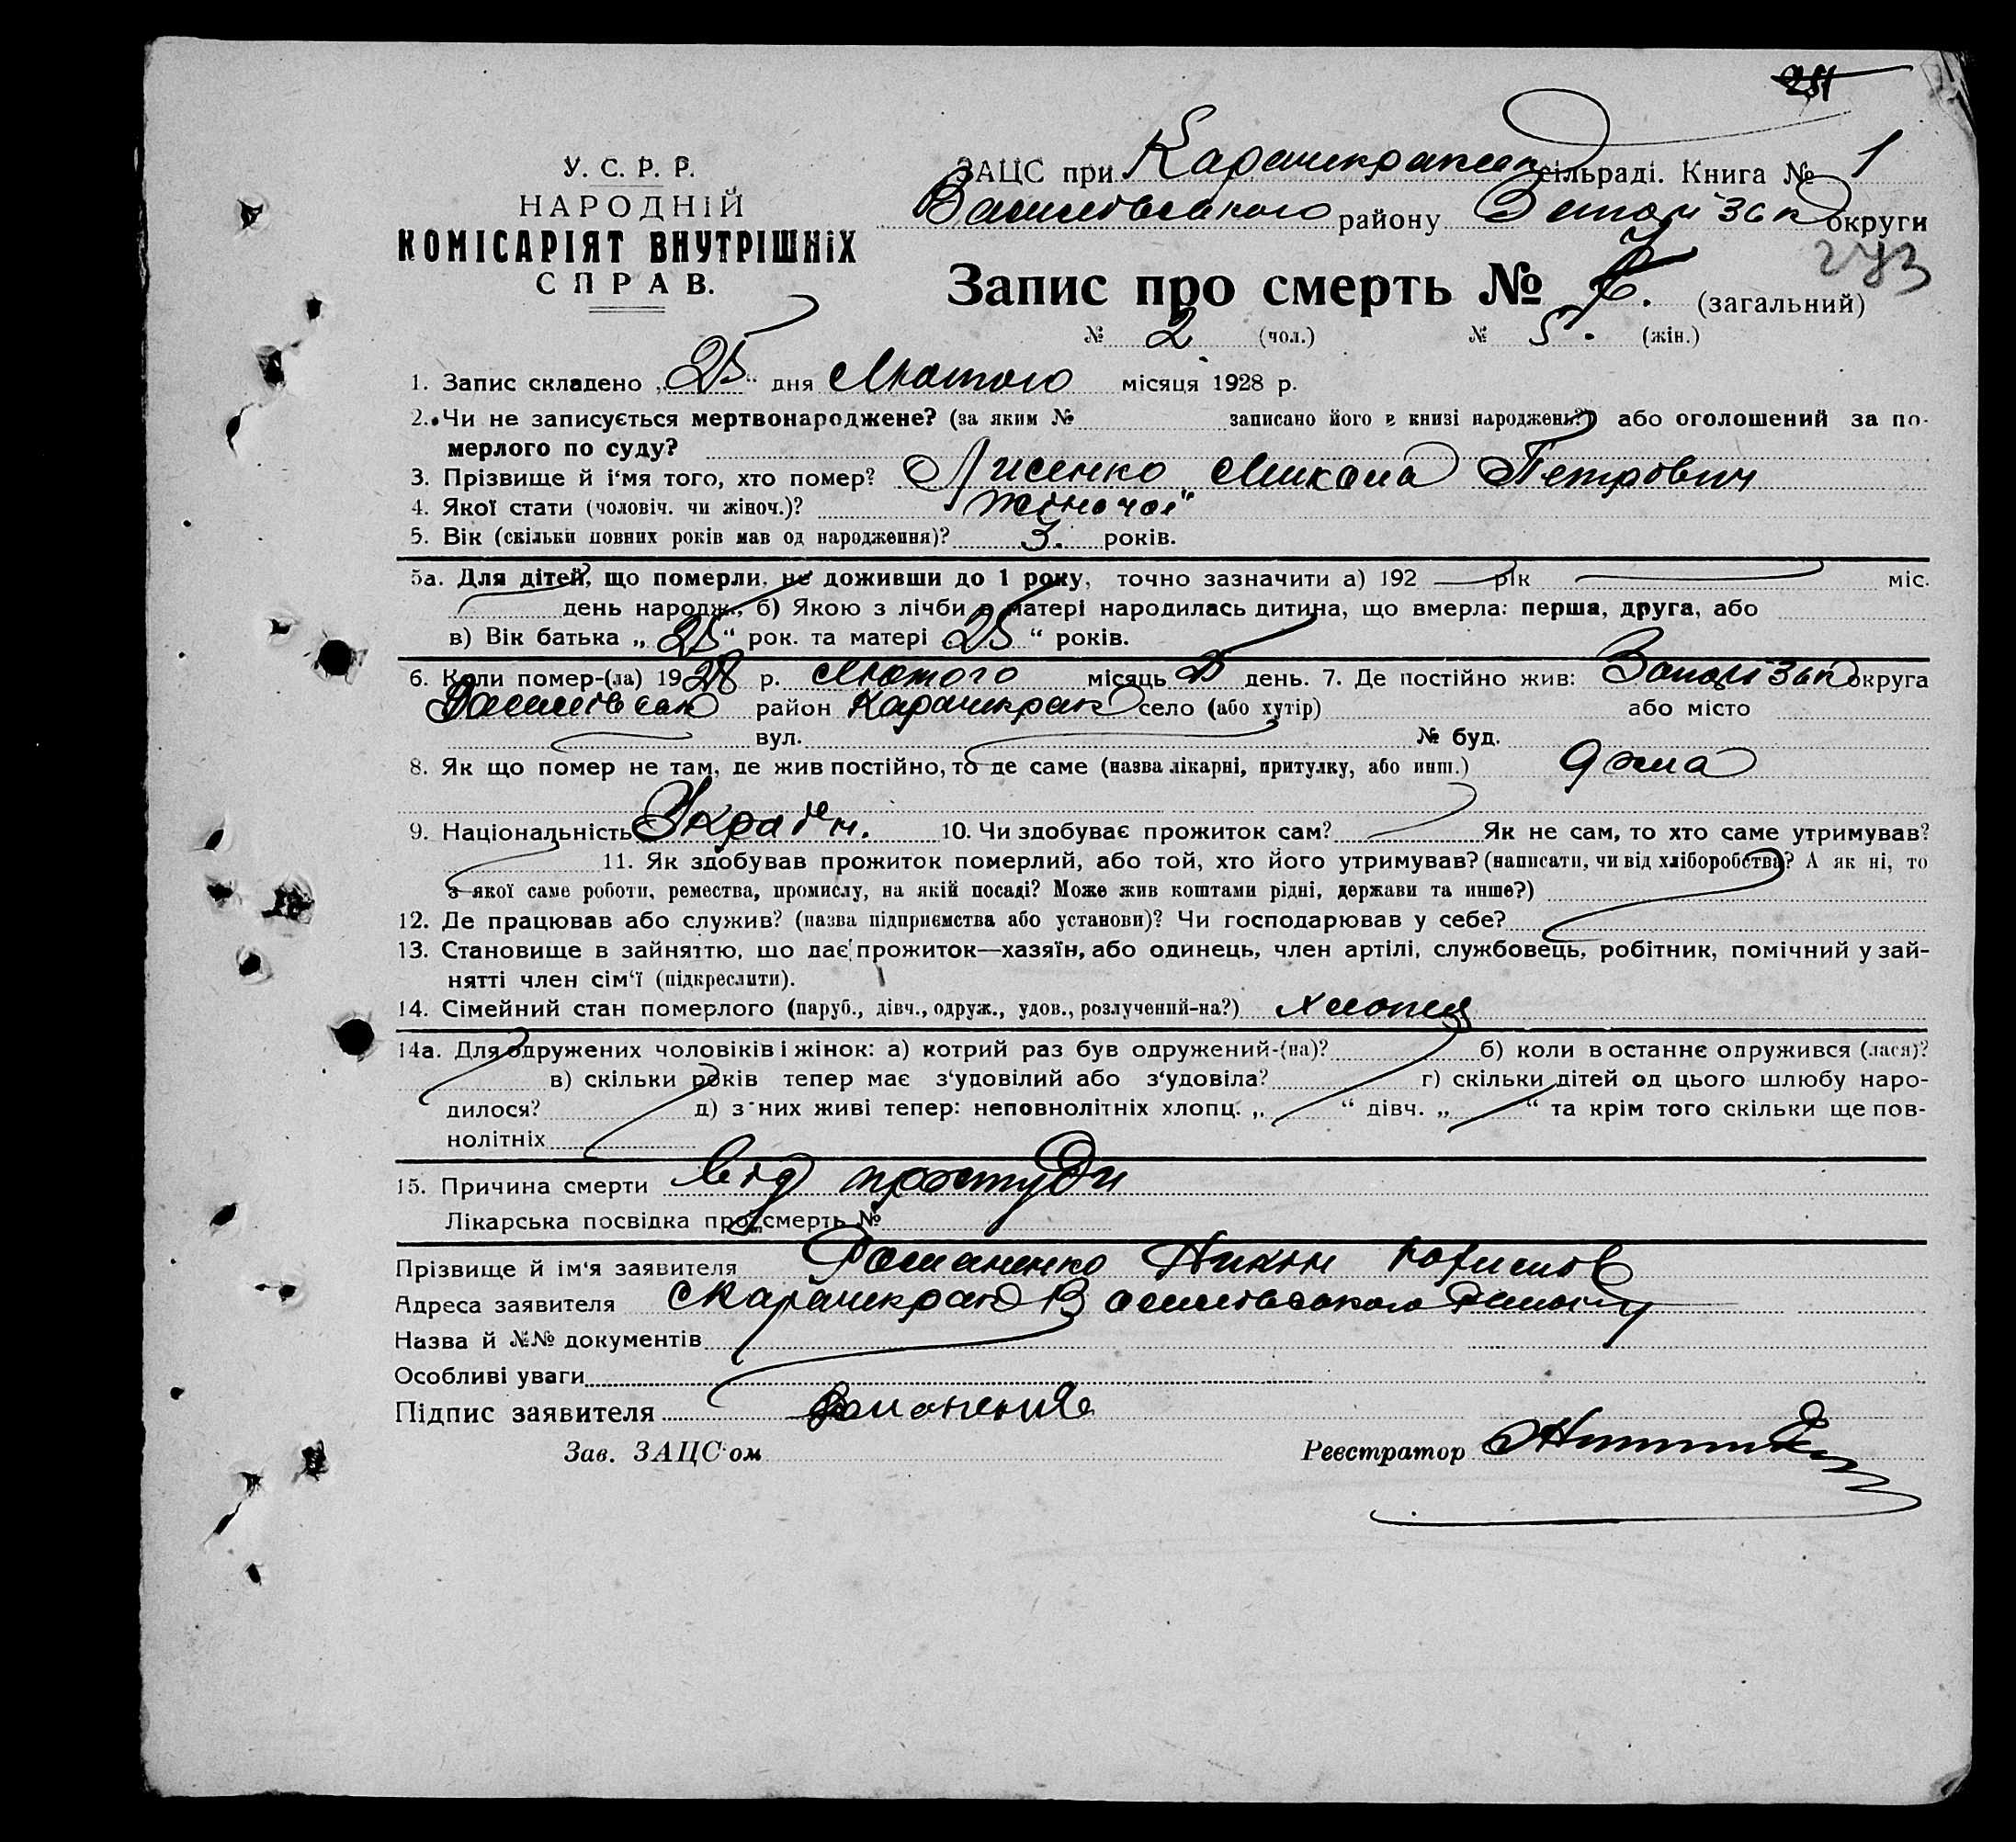 251
У. С. Р. Р.
НАРОДНІЙ
КОМІСАРІЯТ ВНУТРІШНІХ
СПРАВ.
ЗАЦС при Карачекракск сільраді. Книга № 1
Василівського району Запорізьк округи
273
Запис про смерть № 7. (загальний)
№ 2 (чол.) № 5. (жін.)
1. Запис складено „25“ дня Лютого місяця 1928 р.
2. Чи не записується мертвонароджене? (за яким № записано його в книзі народжень?) або оголошений за по-
мерлого по суду?
3. Прізвище й і‘мя того, хто помер? Лисенко Микола Петрович
4. Якої стати (чоловіч. чи жіноч.)? жіночої
5. Вік (скільки повних років мав од народження)? 3. років.
5а. Для дітей, що померли, не доживши до 1 року, точно зазначити а) 192 рік міс.
день народж., б) Якою з лічби в матері народилась дитина, що вмерла: перша, друга, або
в) Вік батька „25“ рок. та матері „25“ років.
6. Коли помер-(ла) 1928 р. Лютого місяць 25 день. 7. Де постійно жив: Запорізьк округа
Василівськ район Карачекрак село (або хутір) або місто
вул. № буд.
8. Як що помер не там, де жив постійно, то де саме (назва лікарні, притулку, або инш.) дома
9. Національність Україн. 10. Чи здобуває прожиток сам? Як не сам, то хто саме утримував?
11. Як здобував прожиток померлий, або той, хто його утримував? (написати, чи від хліборобства? А як ні, то
з якої саме роботи, ремества, промислу, на якій посаді? Може жив коштами рідні, держави та инше?)
12. Де працював або служив? (назва підприємства або установи)? Чи господарював у себе?
13. Становище в зайняттю, що дає прожиток—хазяїн, або одинець, член артілі, службовець, робітник, помічний у зай-
нятті член сім‘ї (підкреслити).
14. Сімейний стан померлого (паруб., дівч., одруж., удов., розлучений-на?) хлопец
14а. Для одружених чоловіків і жінок: а) котрий раз був одружений-(на)? б) коли востаннє одружився (лася)?
в) скільки років тепер має з‘удовілий або з‘удовіла? г) скільки дітей од цього шлюбу наро-
дилося? д) з них живі тепер: неповнолітніх хлопц. „ “ дівч. „ “ та крім того скільки ще пов-
нолітніх
15. Причина смерти від простуди
Лікарська посвідка про смерть №
Прізвище й ім‘я заявителя Романенко Никон
Адреса заявителя с Карачекрак Василівського Району
Назва й №№ документів
Особливі уваги
Підпис заявителя Романенко
Зав. ЗАЦС‘ом Реєстратор